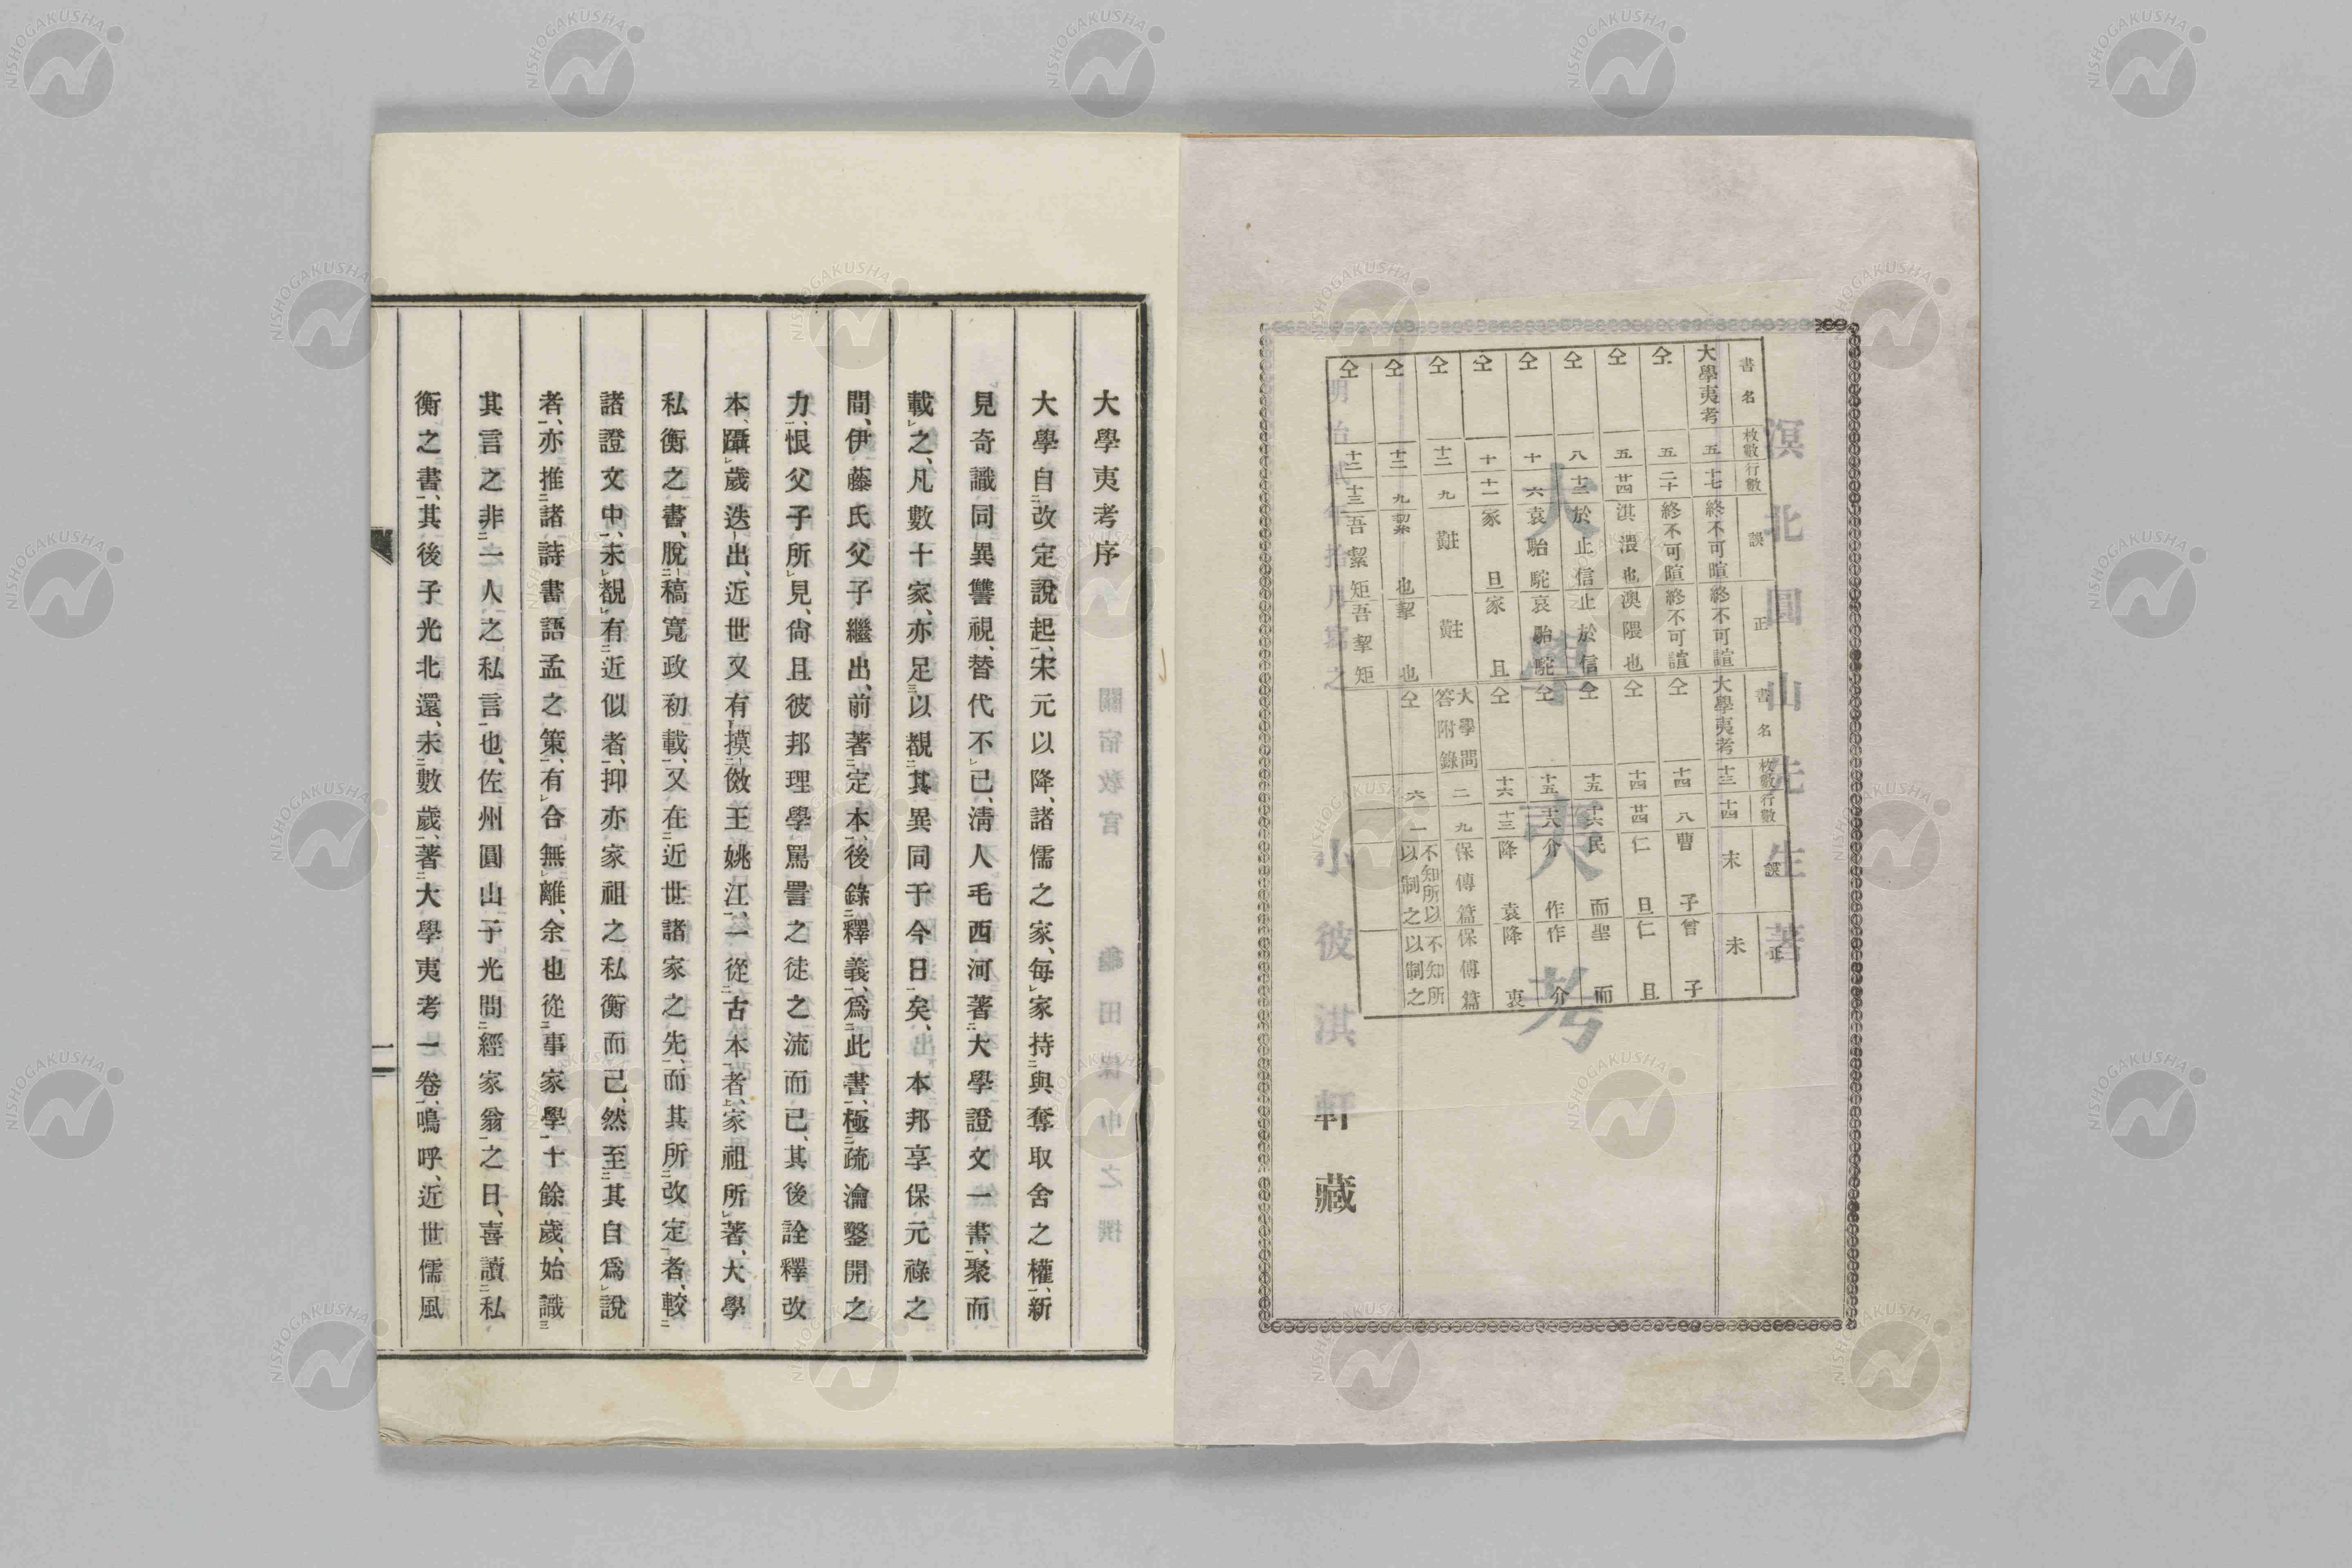 溟北圓山先生著
大學夷考
明治貳年拾月寫之
小彼淇軒藏
書名 枚數 行數 誤 正
大學夷考 五 十七 終不可暄 終不可諠
仝 五 二十 終不可暄 終不可諠
仝 五 廿四 淇澳也 澳隈也
仝 八 十二 於止信 止於信
仝 十 六 袁駘駝 哀駘駝
仝 十 十一 家旦 家且
仝 十二 九
仝 十二 九 絜也 挈也
仝 十二 十三 吾絜矩 吾挈矩
書名 枚數 行數 誤 正
大學夷考 十三 十四 末 未
仝 十四 八 曹子 曾子
仝 十四 廿四 仁旦 仁且
仝 十五 十六 民而 聖而
仝 十五 十八 介作 作介
仝 十六 十三 降袁 降衷
大學問答附錄 二 九 保傅篇 保傅篇
仝 六 一 不知所以以制之 不知所以制之
大學夷考序
大學自改定說起、宋元以降、諸儒之家、每家持與奪取舍之權、新
見奇識、同異讐視、替代不已、淸人毛西河著大學證文一書、聚而
載之、凡數十家、亦足以覩其異同于今日矣、本邦享保元祿之
間、伊藤氏父子繼出、前著定本、後錄釋義、爲此書、極疏瀹鑿開之
力、恨父子所見、尙且彼邦理學罵詈之徒之流而已、其後詮釋改
本、躡歲迭出、近世又有摸倣王姚江、一從古本者、家祖所著、大學
私衡之書、脫稿寬政初載、又在近世諸家之先、而其所改定者、較
諸證文中、未覩有近似者、抑亦家祖之私衡而已、然至其自爲說
者、亦推諸詩書語孟之策、有合無離、余也從事家學十餘歲、始識
其言之非一人之私言也、佐州圓山子光問經家翁之日、喜讀私
衡之書、其後子光北還、未數歲、著大學夷考一卷、嗚呼、近世儒風